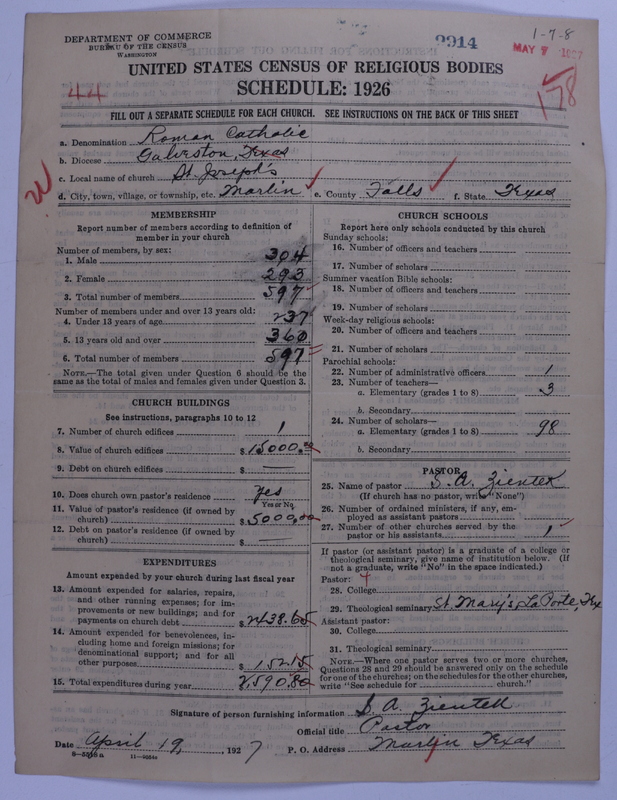 1-7-8
DEPARTMENT OF COMMERCE
BUREAU OF THE CENSUS
WASHINGTON
9914
MAY 7 1927
178
44
UNITED STATES CENSUS OF RELIGIOUS BODIES
SCHEDULE: 1926
FILL OUT A SEPARATE SCHEDULE FOR EACH CHURCH. SEE INSTRUCTIONS ON THE BACK OF THIS SHEET
a. Denomination Roman Catholic
b. Diocese Galveston, Texas
c. Local name of church St. Joseph's
d. City, town, village, or township, etc. Marlin e. County Falls f. State Texas
MEMBERSHIP
Report number of members according to definition of
member in your church
Number of members, by sex:
1. Male 304
2. Female 293
3. Total number of members 597
Number of members under and over 13 years old:
4. Under 13 years of age 237
5. 13 years old and over 360
6. Total number of members 597
NOTE.—The total given under Question 6 should be the
same as the total of males and females given under Question 3.
CHURCH BUILDINGS
See instructions, paragraphs 10 to 12
7. Number of church edifices 1
8. Value of church edifices $ 15000.00
9. Debt on church edifices $ —
10. Does church own pastor's residence yes
Yes or No
11. Value of pastor's residence (if owned by
church) $ 5000.00
12. Debt on pastor's residence (if owned by
church) $ —
EXPENDITURES
Amount expended by your church during last fiscal year
13. Amount expended for salaries, repairs,
and other running expenses; for im-
provements or new buildings; and for
payments on church debt $ 2438.65
14. Amount expended for benevolences, in-
cluding home and foreign missions; for
denominational support; and for all
other purposes $ 152.15
15. Total expenditures during year $ 2,590.80
CHURCH SCHOOLS
Report here only schools conducted by this church
Sunday schools:
16. Number of officers and teachers
17. Number of scholars
Summer vacation Bible schools:
18. Number of officers and teachers
19. Number of scholars
Week-day religious schools:
20. Number of officers and teachers
21. Number of scholars
Parochial schools:
22. Number of administrative officers 1
23. Number of teachers—
a. Elementary (grades 1 to 8) 3
b. Secondary
24. Number of scholars—
a. Elementary (grades 1 to 8) 98
b. Secondary
PASTOR
25. Name of pastor S. A. Zientek
(If church has no pastor, write "None")
26. Number of ordained ministers, if any, em-
ployed as assistant pastors
27. Number of other churches served by the
pastor or his assistants 1
If pastor (or assistant pastor) is a graduate of a college or
theological seminary, give name of institution below. (If
not a graduate, write "No" in the space indicated.)
Pastor: 4
28. College
29. Theological seminary St. Mary's, La Porte, Tex
Assistant pastor:
30. College
31. Theological seminary
NOTE.—Where one pastor serves two or more churches,
Questions 28 and 29 should be answered only on the schedule
for one of the churches; on the schedules for the other churches,
write "See schedule for church."
Signature of person furnishing information S. A. Zientek
Official title Pastor
Date April 19, 1927 P. O. Address Marlin Texas